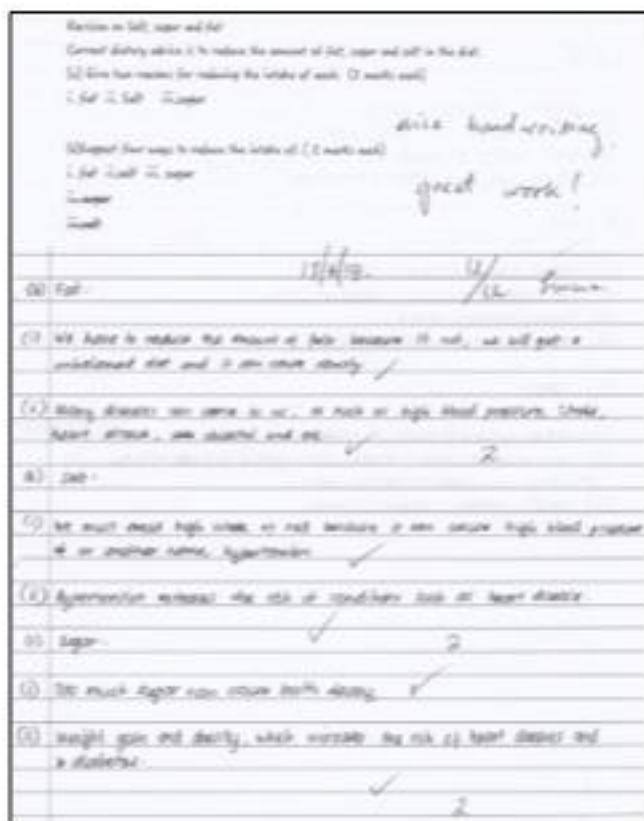 Revision on Salt, sugar and fat
Current dietary advice is to reduce the amount of fat, sugar and salt in the diet.
(a) Give two reasons for reducing the intake of each. (2 marks each)
i. fat ii. Salt iii. sugar
nice handwriting.
(b) Suggest four ways to reduce the intake of: (2 marks each)
i. fat ii. salt iii. sugar
great work!
(a) Fat.
(i) We have to reduce the amount of fats because if not, we will get a
unbalanced diet and it can cause obesity
(ii) Many diseases can come to us, such as high blood pressure, stroke,
heart attack, and etc.
2
(b) Salt.
(i) We must avoid high intake of salt because it can cause high blood pressure
or another name, hypertension.
(ii) Hypertension increases the risk of conditions such as heart disease.
(c) Sugar.
2
(i) Too much sugar can cause tooth decay.
(ii) Weight gain and obesity, which increases the risk of heart diseases and
diabetes.
2